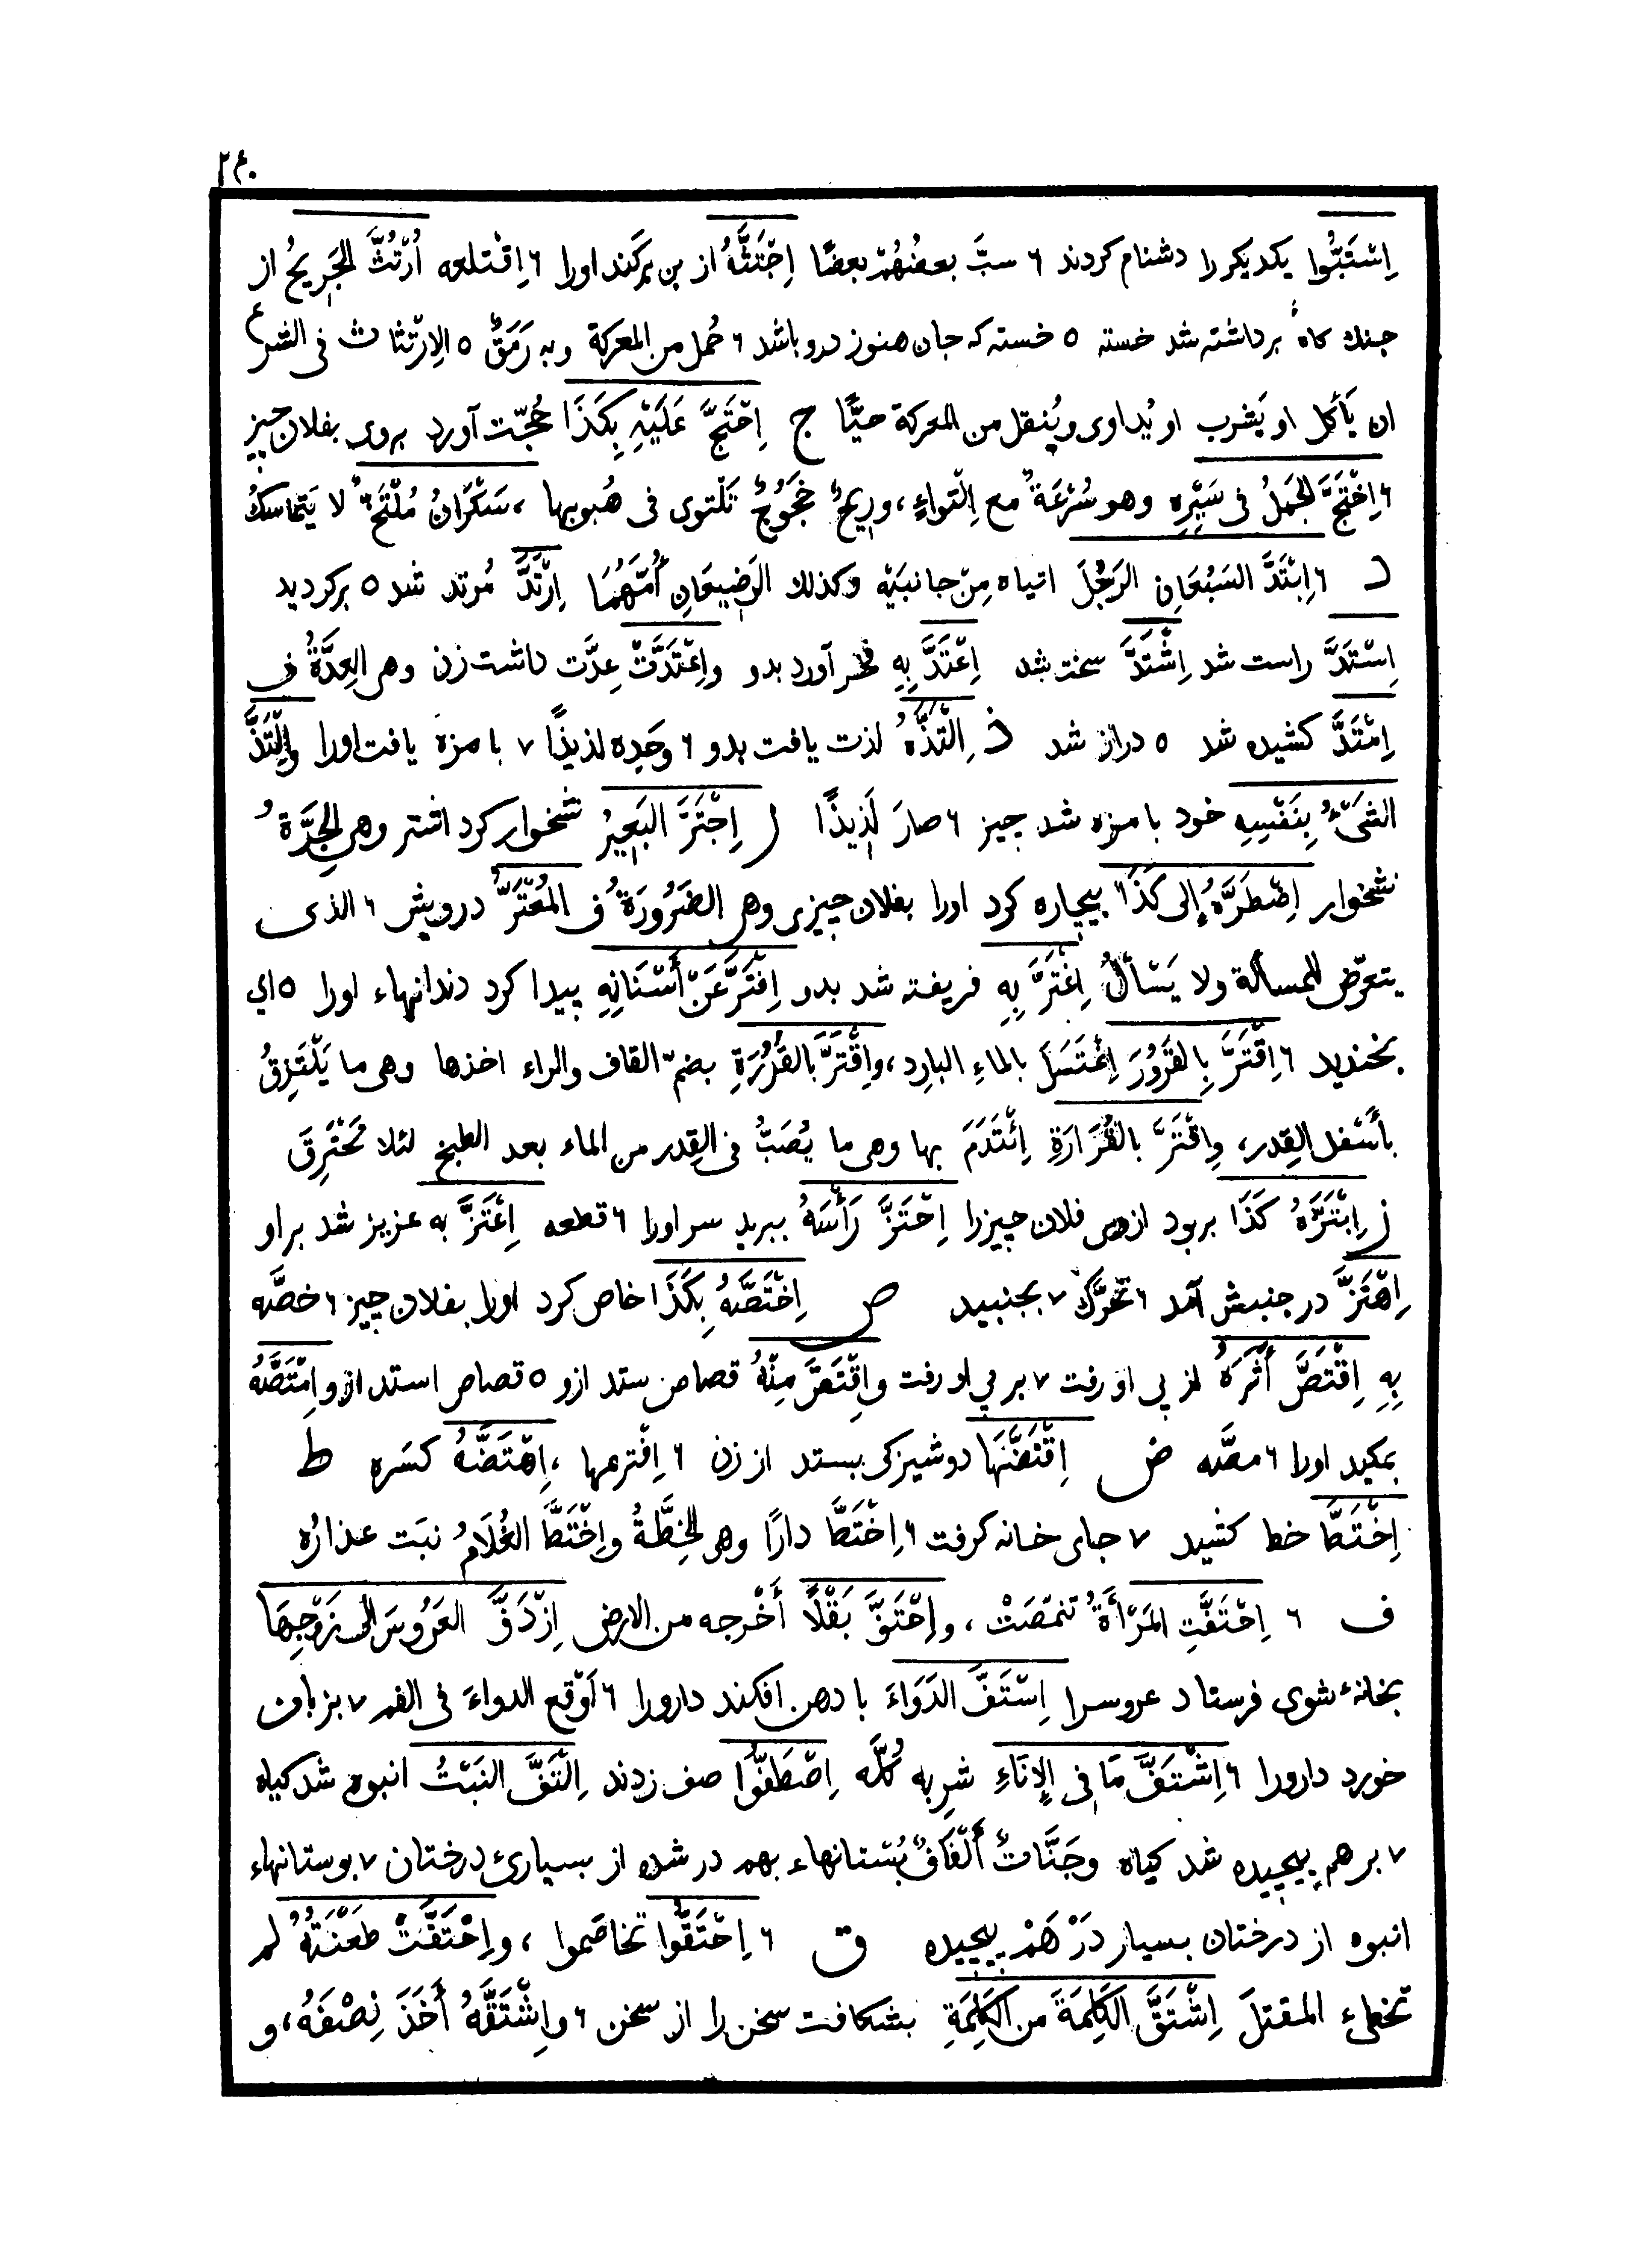 ۲۶۰
اِسْتَبُّوا یکدیکر را دشنام کردند ۶ سبَّ بعضُهُمْ بعضًا اِجْتَثَّهُ از بن برکند اورا ۶ اِقْتلعه اُرْتُثَّ الجَرِیحُ از
جنك كاه برداشته شد خسته ۵ خسته که جان هنوز درو باشد ۶ حُمل من المعرکة وبه رَمَقٌ ۵ الاِرْتثاث فی الشرع
ان یَأکل او یَشرب او یُداوی ویُنقل من المعرکة حیًّا ج اِحْتَجَّ عَلَیْهِ بِکَذَا حُجّت آورد بروی بفلان چیز
۶ اِخْتَجَّ الجَمَلُ فی سَیْرِهِ وهو سُرْعَةٌ مع اِلْتواءٍ، وریحٌ خَجُوجٌ تَلْتوی فی هُبوبها، سَکْرَانُ مُلْتَخٌّ لا یَتماسكُ
د ۶ اِبْتَدَّ السَبُعَانِ الرَجُلَ اتیاه مِنْ جانبَیْه وکذلك الرَضِیعَانِ أُمَّهُمَا اِرْتَدَّ مُرتد شد ۵ برکردید
اِسْتَدَّ راست شد اِشْتَدَّ سخت شد اِعْتَدَّ بِهِ فخر آورد بدو واِعْتَدَّتْ عِدَّت داشت زن وهی العِدَّةُ ف
اِمْتَدَّ کشیده شد ۵ دراز شد ذ اِلْتَذَّهُ لذت یافت بدو ۶ وجَده لذیذًا ۷ با مزه یافت اورا واِلْتَذَّ
الشَیْءُ بِنَفْسِهِ خود با مزه شد چیز ۶ صارَ لَذِیذًا ر اِجْتَرَّ البَعِیرُ نشخوار کرد اشتر وهی الجِرَّةُ
نشخوار اِضْطَرَّهُ إلی کَذَا بیچاره کرد اورا بفلان چیزی وهی الضَرُورَةُ ف المُعْتَرُّ درویش ۶ الذی
یتعرّض للمسألة ولا یَسْألُ اِغْتَرَّ بِهِ فریفته شد بدو اِفْتَرَّ عَنْ أَسْنَانِهِ پیدا کرد دندانهاء اورا ۵ ای
بخندید ۶ اِقْتَرَّ بِالقَرُورِ اِغْتَسَلَ بالماءِ البارِد، واِقْتَرَّ بالقُرُرَةِ بضمّ القاف والراء اخذها وهی ما یَلْتَزِقُ
بأَسْفل القِدر، واِقْتَرَّ بالقُرَارَةِ اِئْتَدَمَ بها وهی ما یُصَبُّ فی القِدر من الماء بعد الطبخ لئلا تَحْتَرِقَ
ز اِبْتَزَّهُ کَذَا بربود ازوی فلان چیزرا اِحْتَزَّ رَأْسَهُ ببرید سر اورا ۶ قطعه اِعْتَزَّ به عزیز شد براو
اِهْتَزَّ در جنبش آمد ۶ تحَرَّكَ ۷ بجنبید ص اِخْتَصَّهُ بِکَذَا خاص کرد اورا بفلان چیز ۶ خصَّه
بِهِ اِقْتَصَّ أَثَرَهُ از پی او رفت ۷ بر پی او رفت واِقْتَصَّ مِنْهُ قصاص ستد ازو ۵ قصاص استد ازو اِمْتَصَّهُ
بمکید اورا ۶ مصَّه ض اِقْتَضَّهَا دوشیزکی بستد از زن ۶ اِفْترعها، اِهْتَضَّهُ کسَره ط
اِخْتَطَّ خط کشید ۷ جای خانه کرفت ۶ اِخْتَطَّ دارًا وهی الخِطَّةُ واِخْتَطَّ الغُلَامُ نبَت عذارُه
ف ۶ اِحْتَفَّتِ المَرْأَةُ تنمّصَتْ، واِحْتَفَّ بَقْلًا أَخْرجه من الارض اِزْدَفَّ العَرُوسَ الی زَوْجِهَا
بخانهٔ شوی فرستاد عروسرا اِسْتَفَّ الدَوَاءَ با دهن افکند دارورا ۶ اَوْقع الدواءَ فی الفم ۷ بزبان
خورد دارورا ۶ اِشْتَفَّ مَا فِی الإِنَاءِ شرِبه کُلَّه اِصْطَفُّوا صف زدند اِلْتَفَّ النَبْتُ انبوه شد کیاه
۷ برهم پیچیده شد کیاه وجَنَّاتٌ أَلْفَافٌ بُسْتانهاء بهم در شده از بسیاری درختان ۷ بوستانهاء
انبوه از درختان بسیار دَرْ هَمْ پیچیده ق ۶ اِحْتَقُّوا تخاصَموا، واِحْتَقَّتْ طَعْنَتُهُ لم
تخطیء المقتلَ اِشْتَقَّ الکَلِمَةَ من الکَلِمَةِ بشکافت سخن را از سخن ۶ واِشْتَقَّهُ أَخَذَ نِصْفَهُ، و